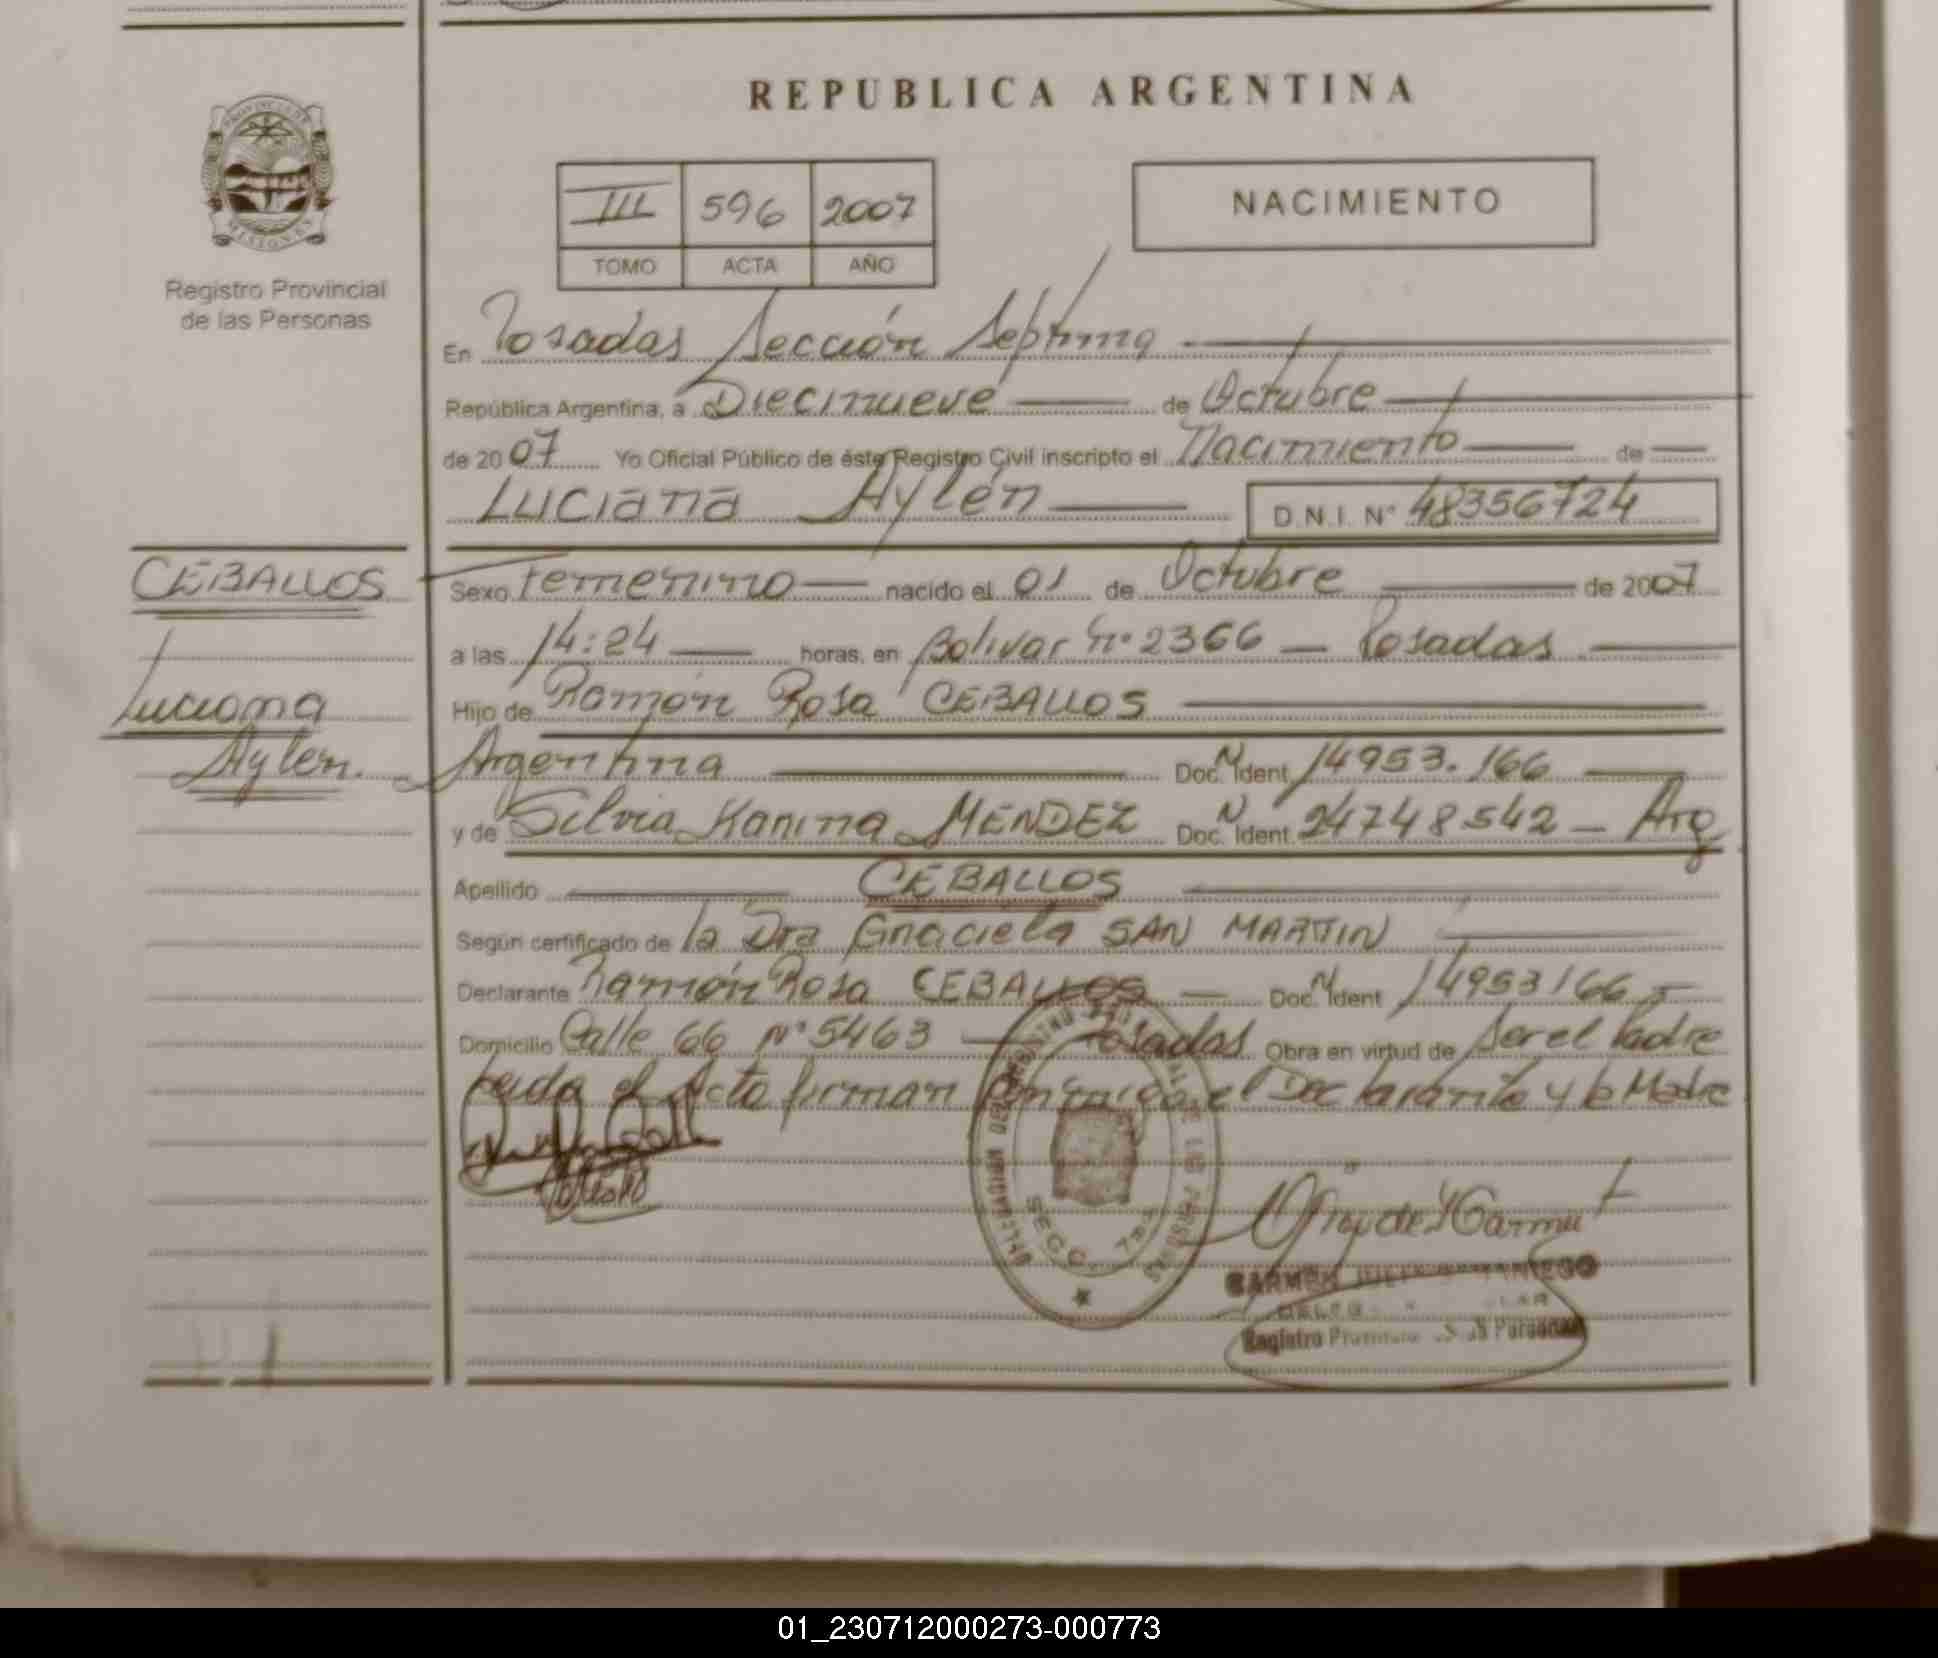 REPUBLICA ARGENTINA
PROVINCIA DE
MISIONES
Registro Provincial
de las Personas
III 596 2007
TOMO ACTA AÑO
NACIMIENTO
En Posadas Sección Septima
República Argentina, a Diecinueve de Octubre
de 2007 Yo Oficial Público de éste Registro Civil inscripto el Nacimiento de
Luciana Aylén D.N.I. N° 48356724
CEBALLOS
Luciana
Aylen.
Sexo Femenino nacido el 01 de Octubre de 2007
a las 14:24 horas, en Bolivar N° 2366 — Posadas
Hijo de Ramón Rosa CEBALLOS
Argentina Doc. N Ident. 14953.166
y de Silvia Karina MENDEZ Doc. N Ident. 24748542 — Arg
Apellido CEBALLOS
Según certificado de la Dra Graciela SAN MARTIN
Declarante Ramón Rosa CEBALLOS Doc. N Ident 14953166
Domicilio Calle 66 N° 5463 Posadas Obra en virtud de Ser el Padre
Leida el Acta firman Conmigo el Declarante y la Madre
SECC. 7ma
CARMEN
Registro
01_230712000273-000773